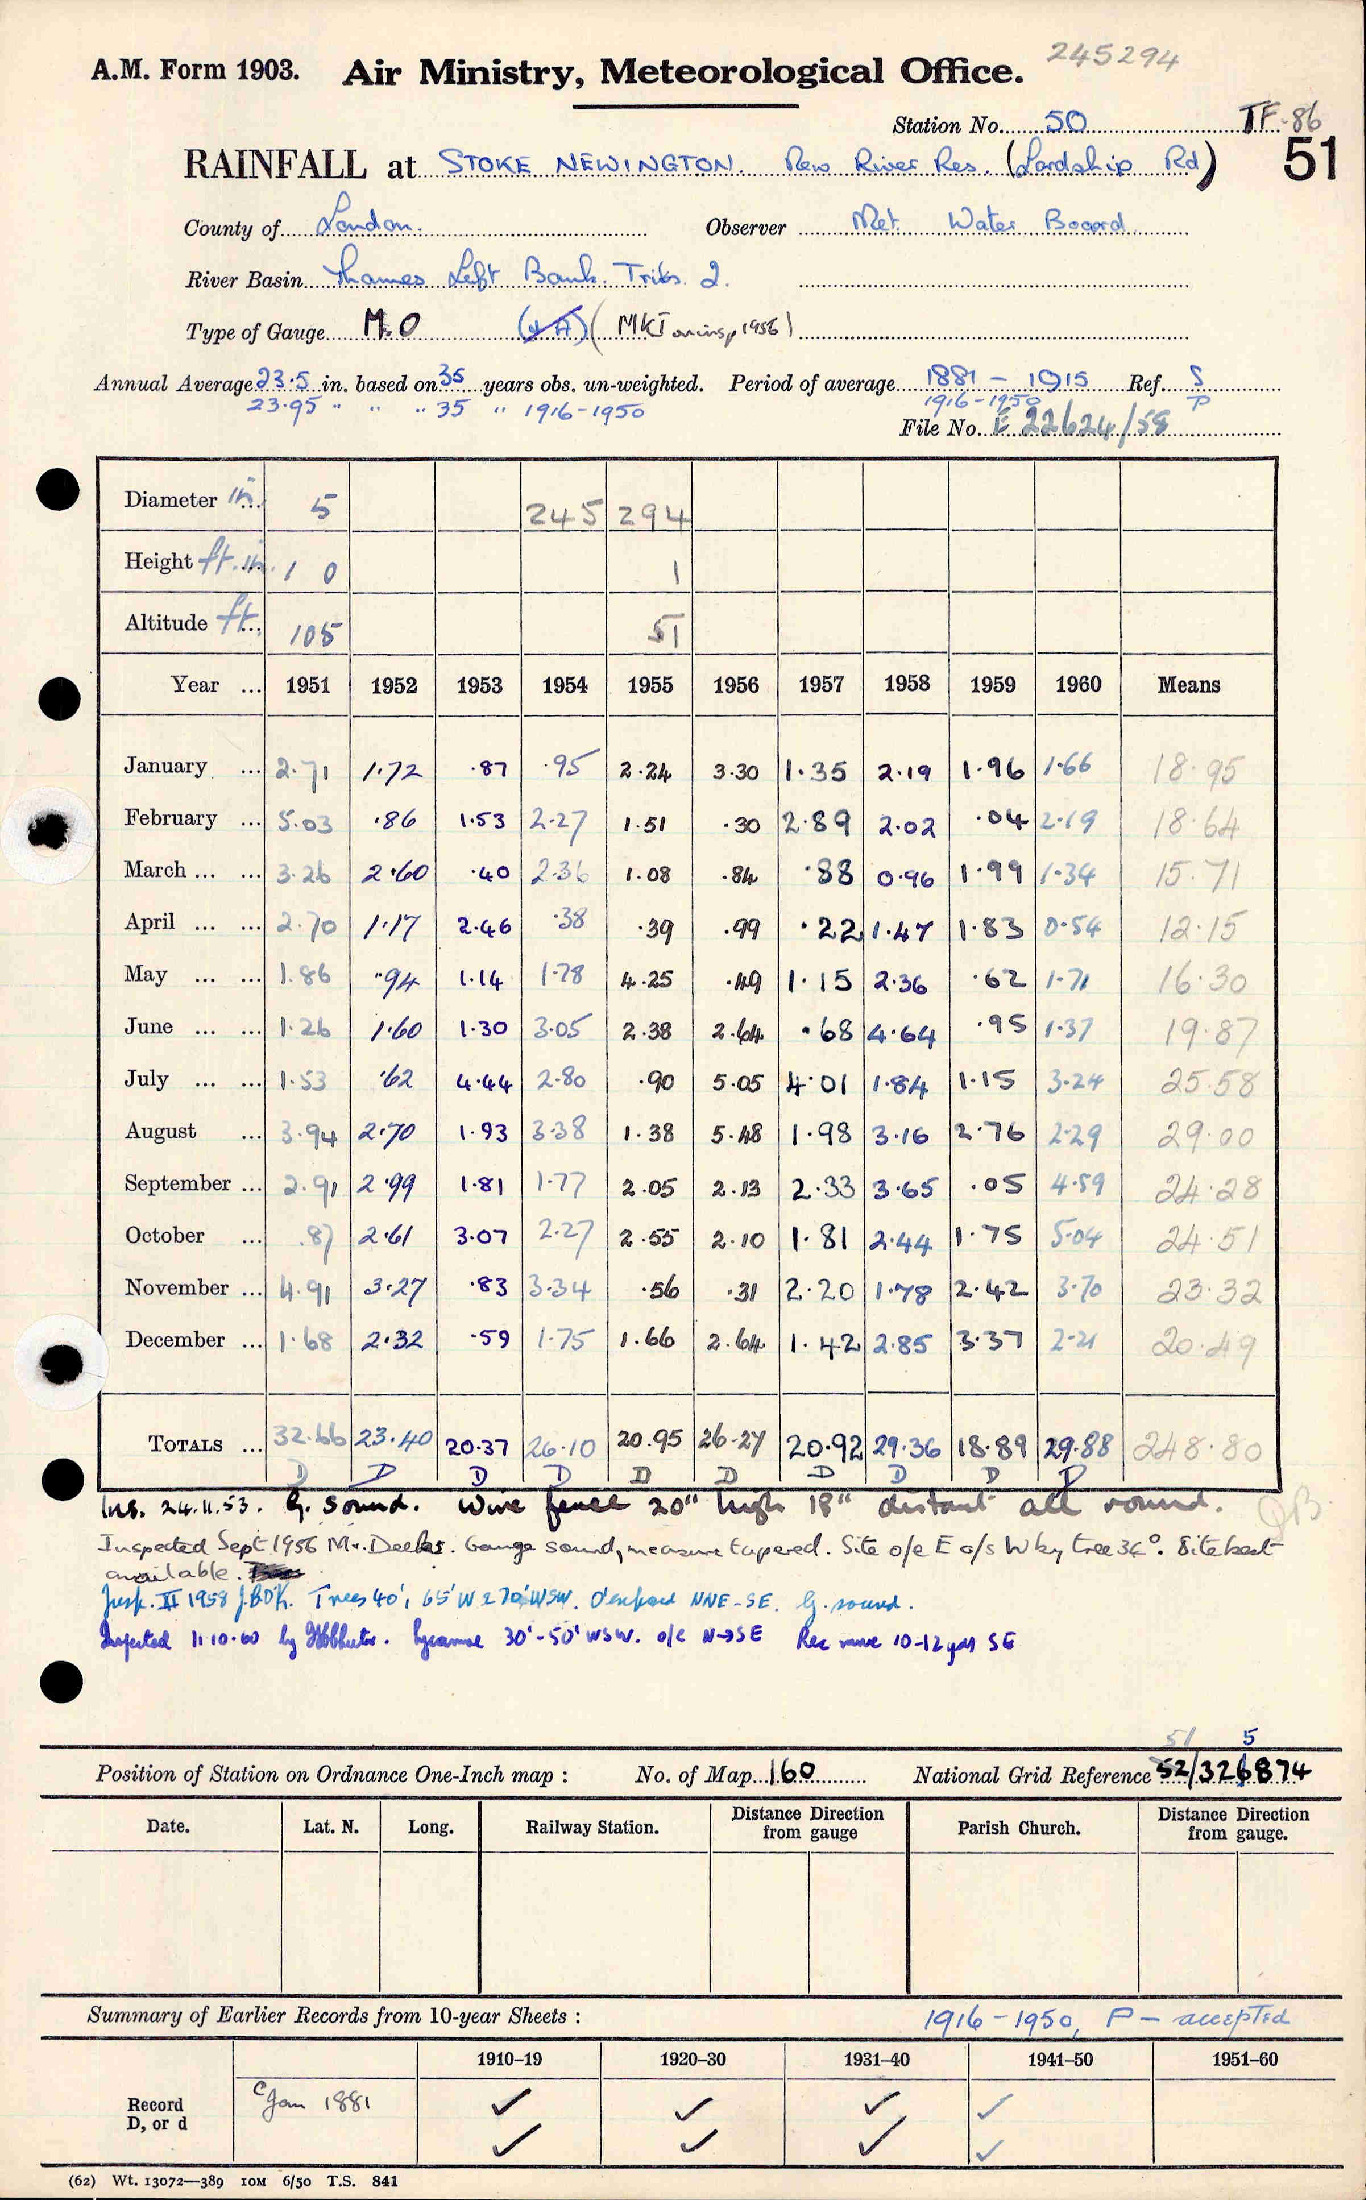 245294
A.M. Form 1903. Air Ministry, Meteorological Office.
Station No. 50 TF.86
RAINFALL at STOKE NEWINGTON. New River Res. (Lordship Rd) 51
County of London. Observer Met. Water Board
River Basin Thames Left Bank. Tribs. 2.
Type of Gauge M.O (MKI 1956)
Annual Average 23.5 in. based on 35 years obs. un-weighted. Period of average 1881 - 1915 Ref. S
23.95 " " " 35 " 1916-1950 1916-1950 P
File No. E 22624/58
Diameter in. 5 245 294
Height ft. in. 1 0 1
Altitude ft. 105 51
Year ... 1951 1952 1953 1954 1955 1956 1957 1958 1959 1960 Means
January ... 2.71 1.72 .87 .95 2.24 3.30 1.35 2.19 1.96 1.66 18.95
February ... 5.03 .86 1.53 2.27 1.51 .30 2.89 2.02 .04 2.19 18.64
March ... ... 3.26 2.60 .40 2.36 1.08 .84 .88 0.96 1.99 1.34 15.71
April ... ... 2.70 1.17 2.46 .38 .39 .99 .22 1.47 1.83 0.54 12.15
May ... ... 1.86 .94 1.14 1.78 4.25 .49 1.15 2.36 .62 1.71 16.30
June ... ... 1.26 1.60 1.30 3.05 2.38 2.64 .68 4.64 .95 1.37 19.87
July ... ... 1.53 .62 4.44 2.80 .90 5.05 4.01 1.84 1.15 3.24 25.58
August ... 3.94 2.70 1.93 3.38 1.38 5.48 1.98 3.16 2.76 2.29 29.00
September ... 2.91 2.99 1.81 1.77 2.05 2.13 2.33 3.65 .05 4.59 24.28
October ... .87 2.61 3.07 2.27 2.55 2.10 1.81 2.44 1.75 5.04 24.51
November ... 4.91 3.27 .83 3.34 .56 .31 2.20 1.78 2.42 3.70 23.32
December ... 1.68 2.32 .59 1.75 1.66 2.64 1.42 2.85 3.37 2.21 20.49
TOTALS ... 32.66 23.40 20.37 26.10 20.95 26.27 20.92 29.36 18.89 29.88 248.80
D D D D D D D D D D
Ins. 24.11.53. G. sound. Wire fence 20" high 18" distant all round.
Inspected Sept 1956 Mr. Deeks. Gauge sound, measure tapered. Site o/e E o/s W by tree 34°. Site best
available.
Insp. II 1958 J.BDK. Trees 40', 65' W 270' WSW. O'exposed NNE-SE. G. sound.
Inspected 11.10.60 by Sycamore 30'-50' WSW. o/e N→SE Rec 10-12 yds SE
51 5
Position of Station on Ordnance One-Inch map : No. of Map 160 National Grid Reference 52/326874
Date. Lat. N. Long. Railway Station. Distance Direction from gauge Parish Church. Distance Direction from gauge.
Summary of Earlier Records from 10-year Sheets : 1916-1950, P - accepted
1910–19 1920–30 1931–40 1941–50 1951–60
Record D, or d c Jan 1881 ✓ ✓ ✓ ✓
✓ ✓ ✓ ✓
(62) Wt. 13072—389 IOM 6/50 T.S. 841